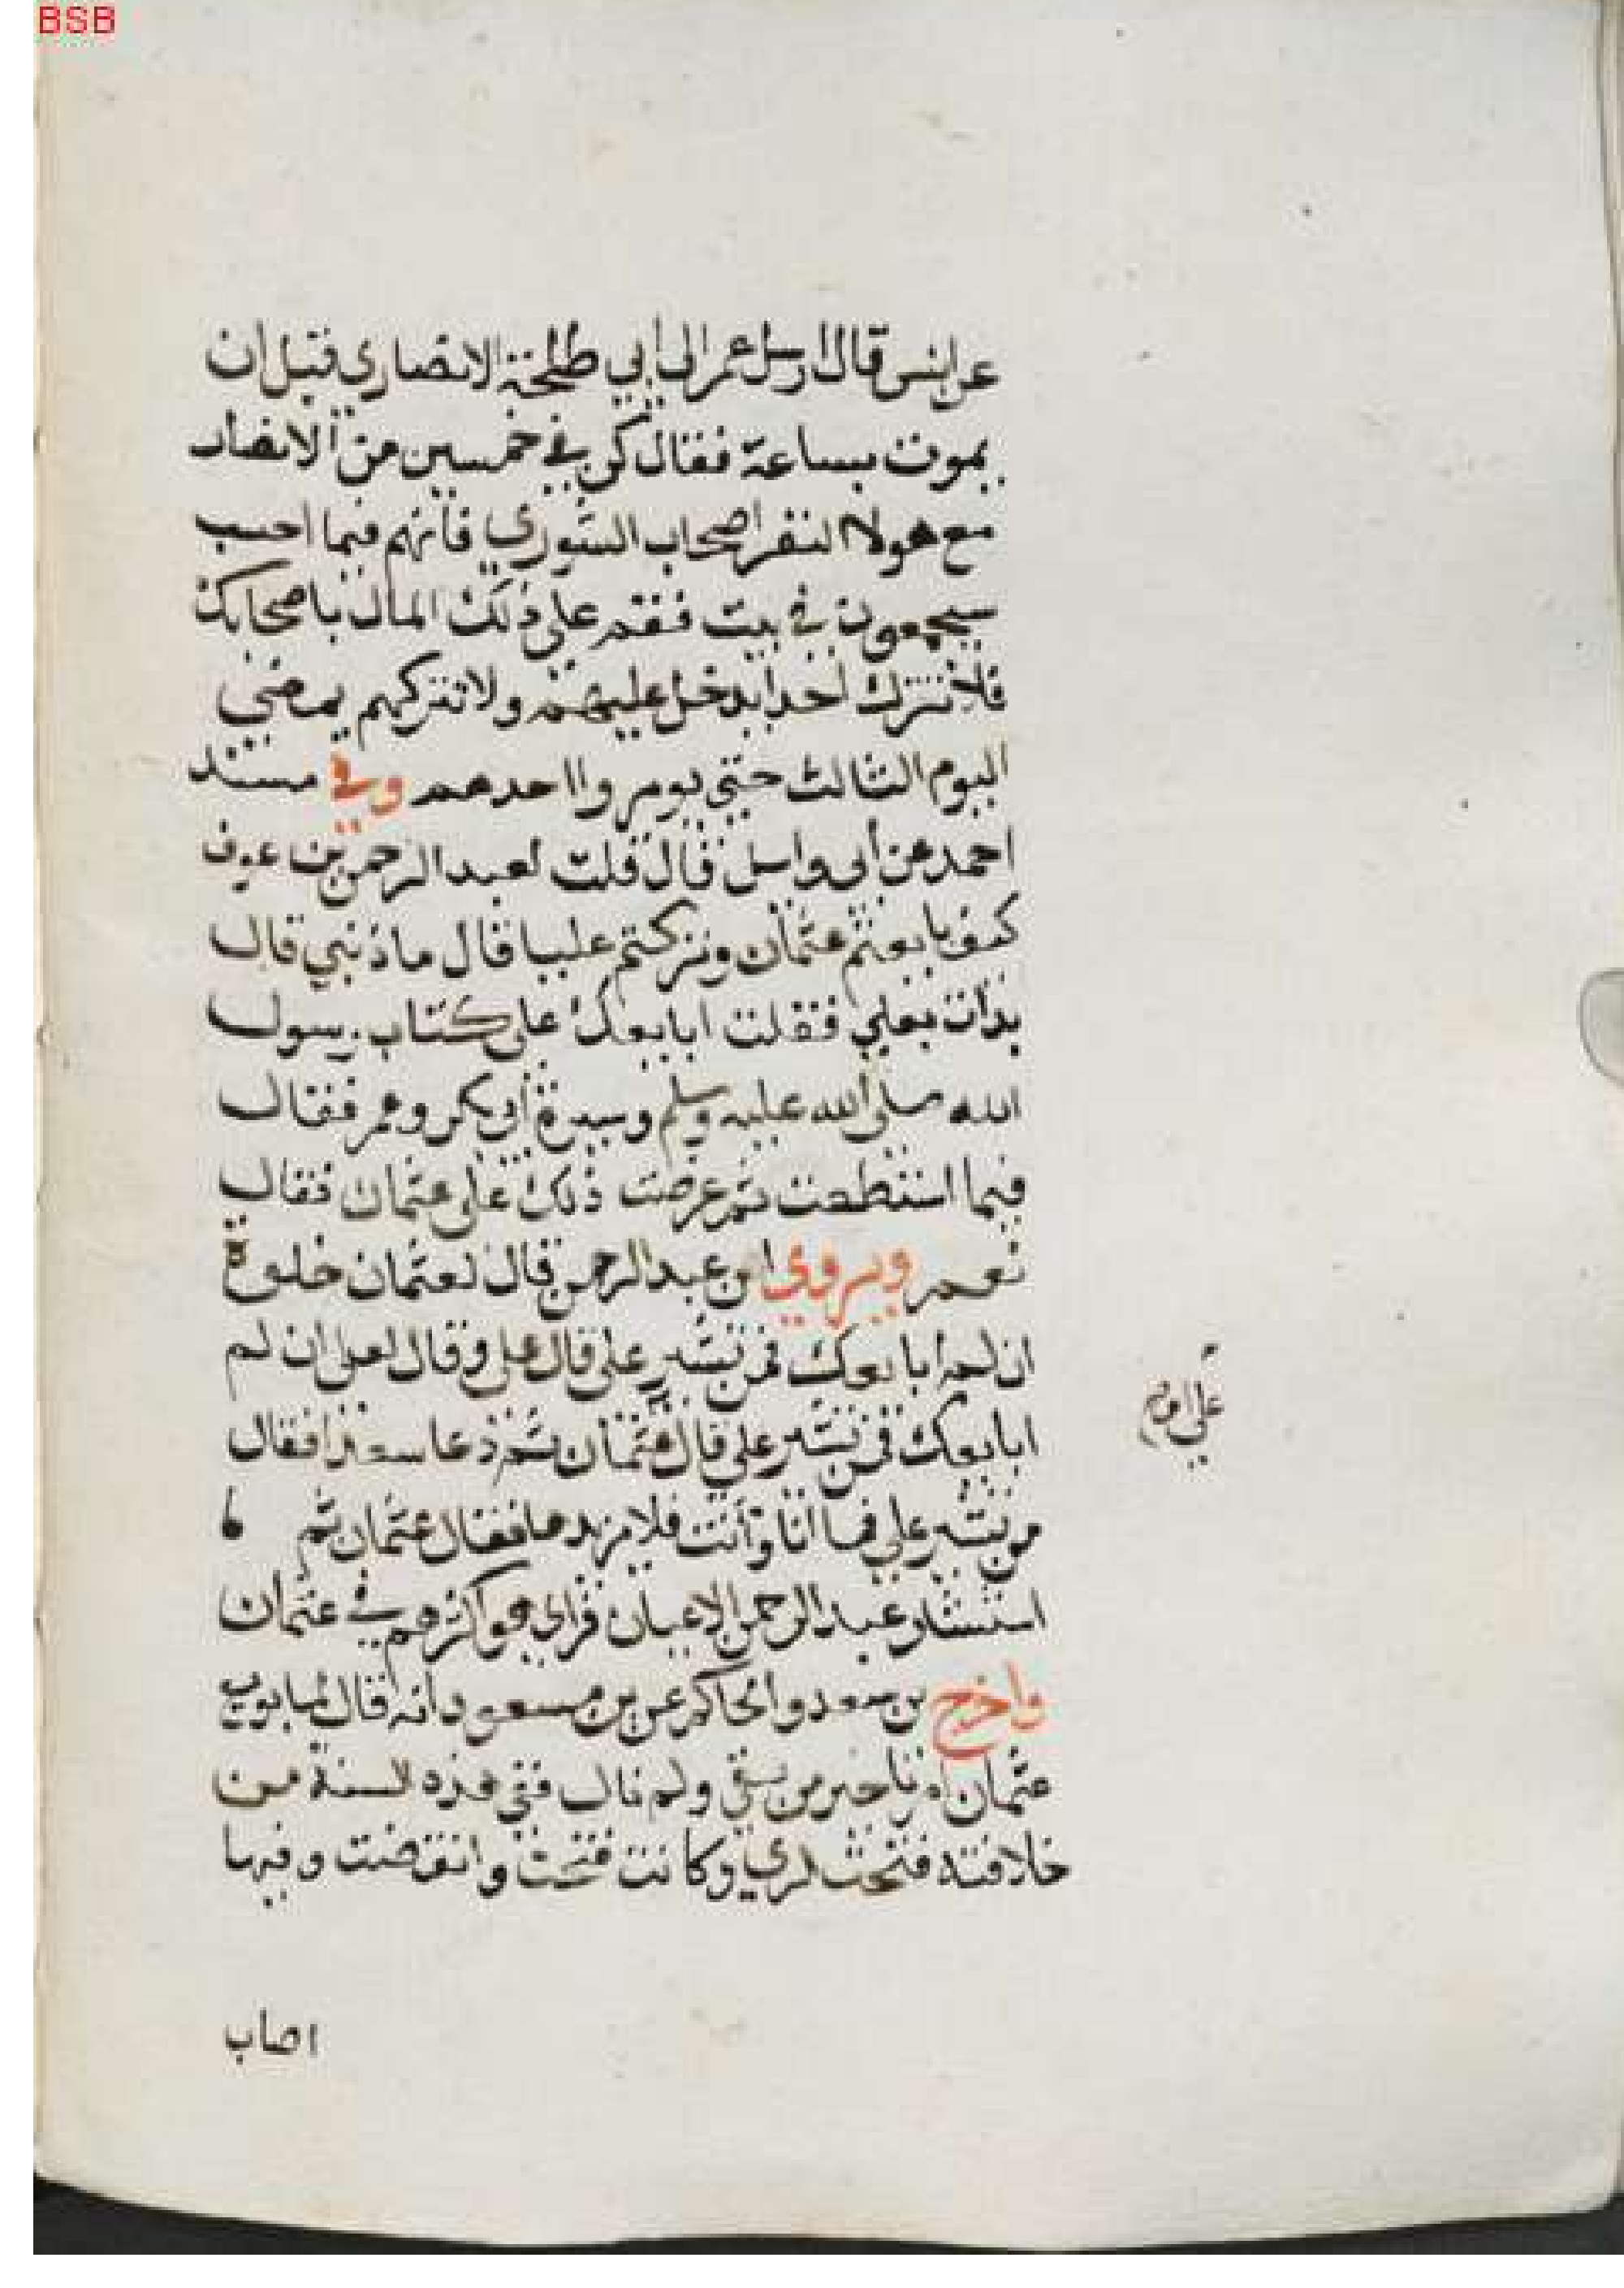 BSB
عن انس قال ارسل عمر الى ابي طلحة الانصاري قبل ان
يموت بساعة فقال كن في خمسين من الانصار
مع هولا النفر اصحاب الشورى فانهم فيما احسب
سيجمعون في بيت فقم على ذلك المال باصحابك
فلا تترك احدا يدخل عليهم ولا تتركهم يمضي
اليوم الثالث حتى يومروا احدهم وفي مسند
احمد عن ابي وايل قال قلت لعبد الرحمن بن عوف
كيف بايعتم عثمان وتركتم عليا قال ما ذنبي قال
بدات بعلي فقلت ابايعك على كتاب رسول
الله صلى الله عليه وسلم وسيرة ابي بكر وعمر فقال
فيما استطعت ثم عرضت ذلك على عثمان فقال
نعم ويروى ان عبد الرحمن قال لعثمان خلوة
ان لم ابايعك فمن تشير علي قال علي وقال لعلي ان لم
ابايعك فمن تشير علي قال عثمان ثم دعا سعدا فقال
من تشير علي فما انا وانت فلا نريدها فقال عثمان ثم
استشار عبد الرحمن الاعيان فراى هوا اكثرهم في عثمان
واخرج بن سعد والحاكم عن بن مسعود انه قال لما بويع
عثمان امرنا خير من بقي ولم نال ففي هذه السنة من
خلافته فتحت الري وكانت فتحت وانتقضت وفيها
اصاب